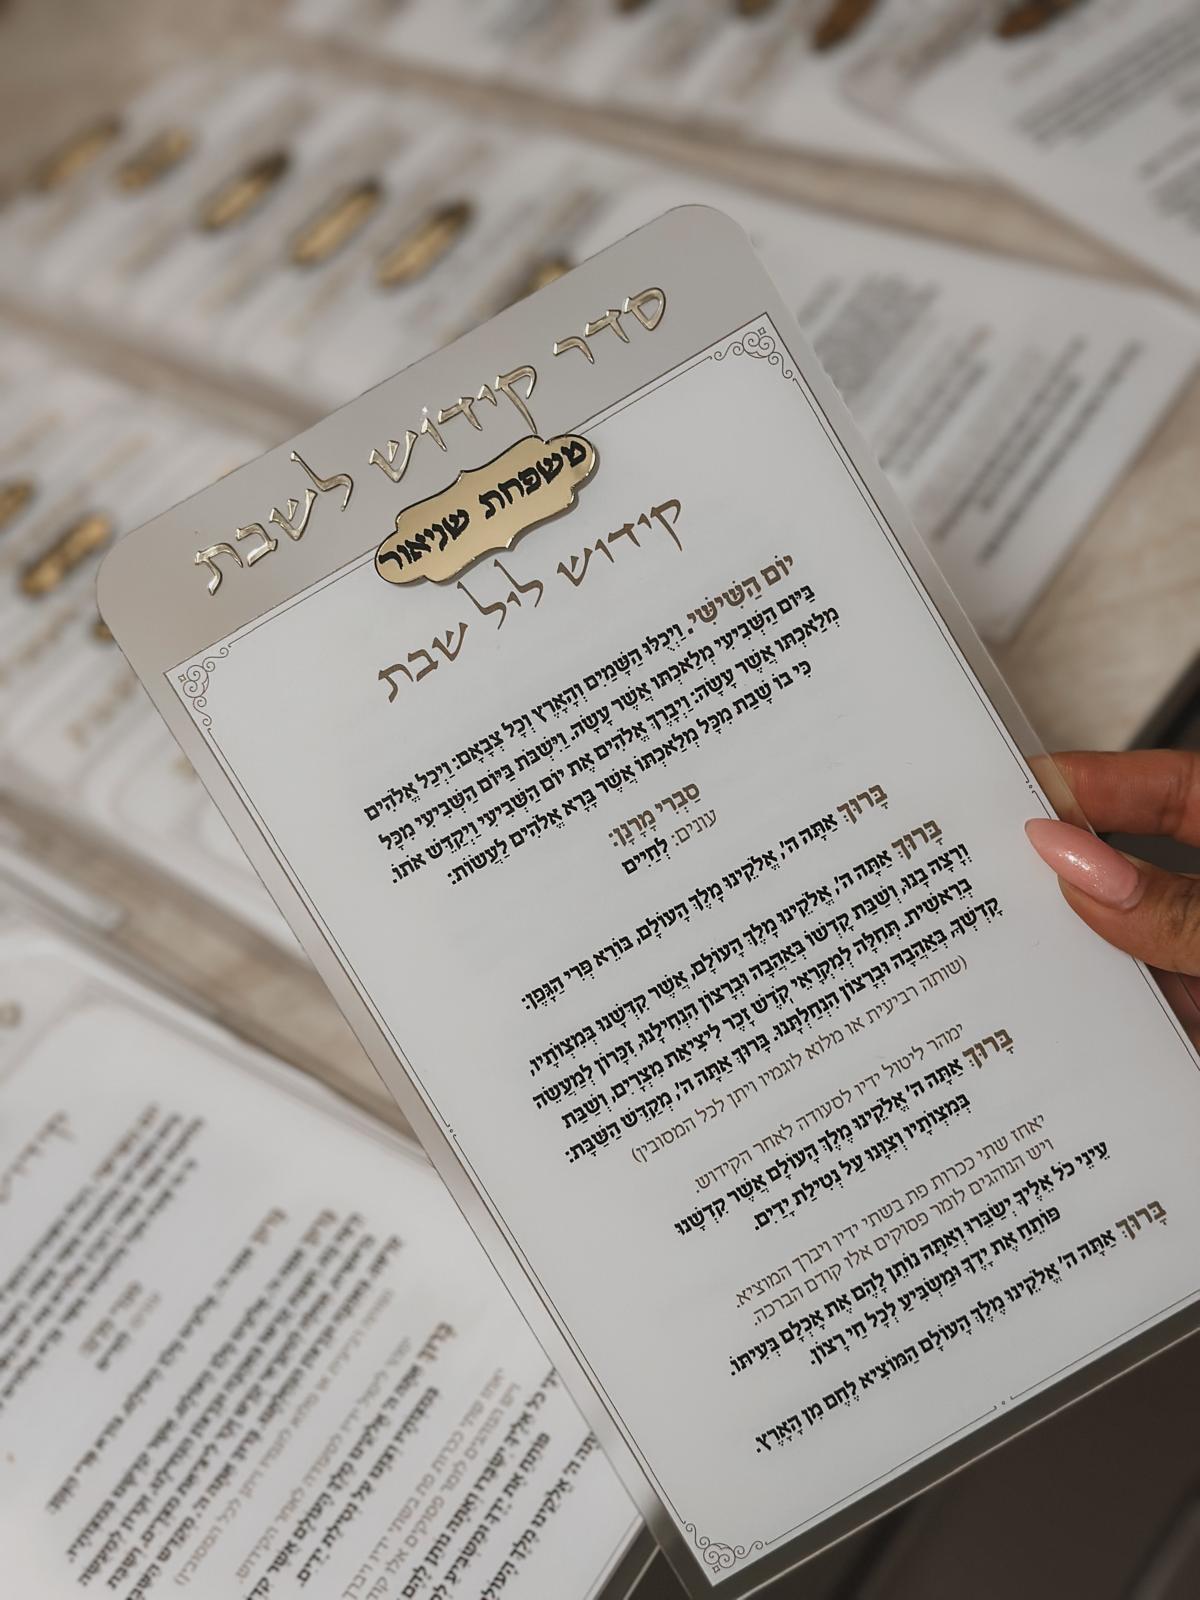 סדר קידוש לשבת
משפחת שניאור
קידוש ליל שבת
יוֹם הַשִּׁישִּׁי. וַיְכֻלּוּ הַשָּׁמַיִם וְהָאָרֶץ וְכָל צְבָאָם: וַיְכַל אֱלֹהִים
בַּיּוֹם הַשְּׁבִיעִי מְלַאכְתּוֹ אֲשֶׁר עָשָׂה. וַיִּשְׁבֹּת בַּיּוֹם הַשְּׁבִיעִי מִכָּל
מְלַאכְתּוֹ אֲשֶׁר עָשָׂה: וַיְבָרֶךְ אֱלֹהִים אֶת יוֹם הַשְּׁבִיעִי וַיְקַדֵּשׁ אֹתוֹ.
כִּי בוֹ שָׁבַת מִכָּל מְלַאכְתּוֹ אֲשֶׁר בָּרָא אֱלֹהִים לַעֲשׂוֹת:
סַבְרִי מָרָנָן:
עונים: לְחַיִּים
בָּרוּךְ אַתָּה ה', אֱלֹקֵינוּ מֶלֶךְ הָעוֹלָם, בּוֹרֵא פְּרִי הַגָּפֶן:
בָּרוּךְ אַתָּה ה', אֱלֹקֵינוּ מֶלֶךְ הָעוֹלָם, אֲשֶׁר קִדְּשָׁנוּ בְּמִצְוֹתָיו,
וְרָצָה בָנוּ, וְשַׁבַּת קָדְשׁוֹ בְּאַהֲבָה וּבְרָצוֹן הִנְחִילָנוּ, זִכָּרוֹן לְמַעֲשֵׂה
בְרֵאשִׁית. תְּחִלָּה לְמִקְרָאֵי קֹדֶשׁ זֵכֶר לִיצִיאַת מִצְרָיִם, וְשַׁבַּת
קָדְשְׁךָ, בְּאַהֲבָה וּבְרָצוֹן הִנְחַלְתָּנוּ. בָּרוּךְ אַתָּה ה', מְקַדֵּשׁ הַשַּׁבָּת:
(שותה רביעית או מלוא לוגמיו ויתן לכל המסובין)
ימהר ליטול ידיו לסעודה לאחר הקידוש.
בָּרוּךְ אַתָּה ה' אֱלֹקֵינוּ מֶלֶךְ הָעוֹלָם אֲשֶׁר קִדְּשָׁנוּ
בְּמִצְוֹתָיו וְצִוָּנוּ עַל נְטִילַת יָדַיִם.
יאחז שתי ככרות פת בשתי ידיו ויברך המוציא.
ויש הנוהגים לומר פסוקים אלו קודם הברכה.
עֵינֵי כֹל אֵלֶיךָ יְשַׂבֵּרוּ וְאַתָּה נוֹתֵן לָהֶם אֶת אָכְלָם בְּעִיתּוֹ.
פּוֹתֵחַ אֶת יָדֶךָ וּמַשְׂבִּיעַ לְכָל חַי רָצוֹן.
בָּרוּךְ אַתָּה ה' אֱלֹקֵינוּ מֶלֶךְ הָעוֹלָם הַמּוֹצִיא לֶחֶם מִן הָאָרֶץ.